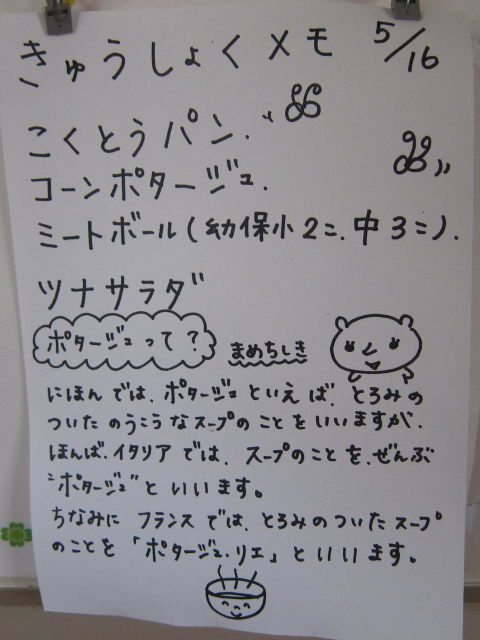 きゅうしょくメモ 5/16
こくとうパン.
コーンポタージュ.
ミートボール(幼保小2コ.中3コ).
ツナサラダ
ポタージュって?
まめちしき
にほんでは、ポタージュといえば、とろみの
ついたのうこうなスープのことをいいますが、
ほんば、イタリアでは、スープのことを、ぜんぶ
"ポタージュ"といいます。
ちなみにフランスでは、とろみのついたスープ
のことを「ポタージュ・リエ」といいます。